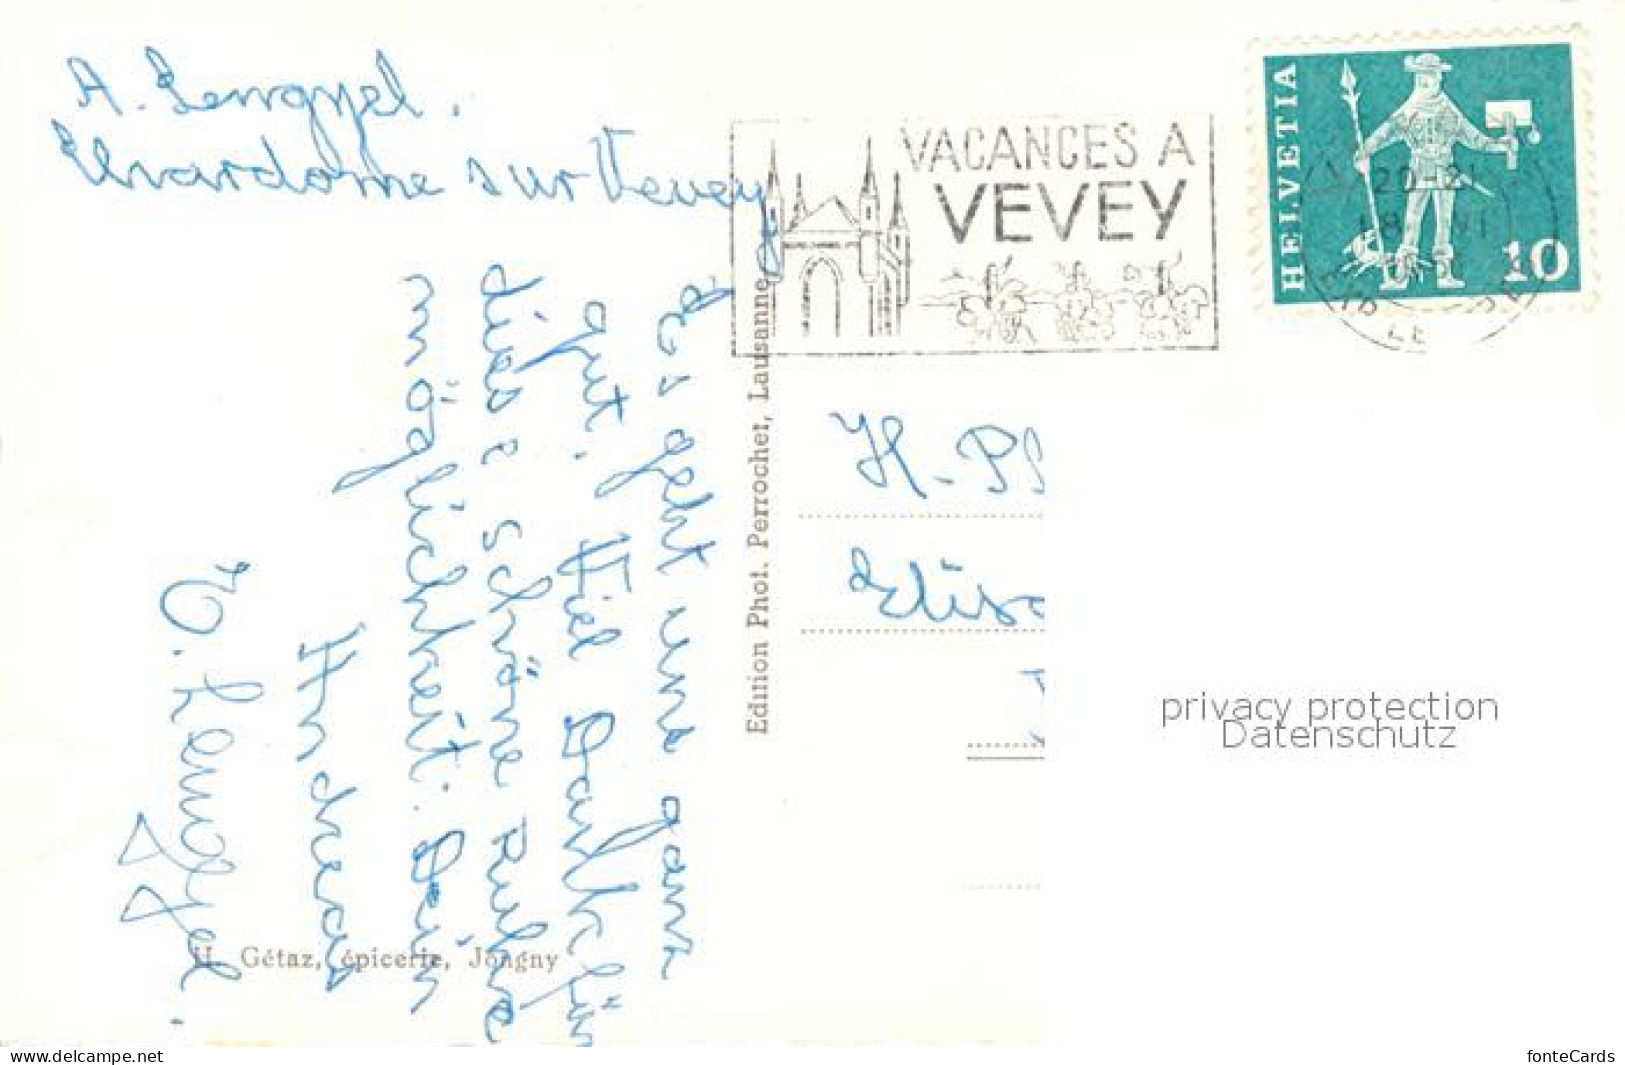 A. Lengyel.
Chardonne sur Vevey
Es geht uns ganz
gut. Viel Dank für
diese schöne Ruhe
möglichkeit. Dein
Andreas
V. Lengyel.
H. Gétaz, épicerie, Jongny
Edition Phot. Perrochet, Lausanne
VACANCES A
VEVEY
HELVETIA
10
20-21
18 VI
H. Pf
Elisa
privacy protection
Datenschutz
www.delcampe.net
fonteCards